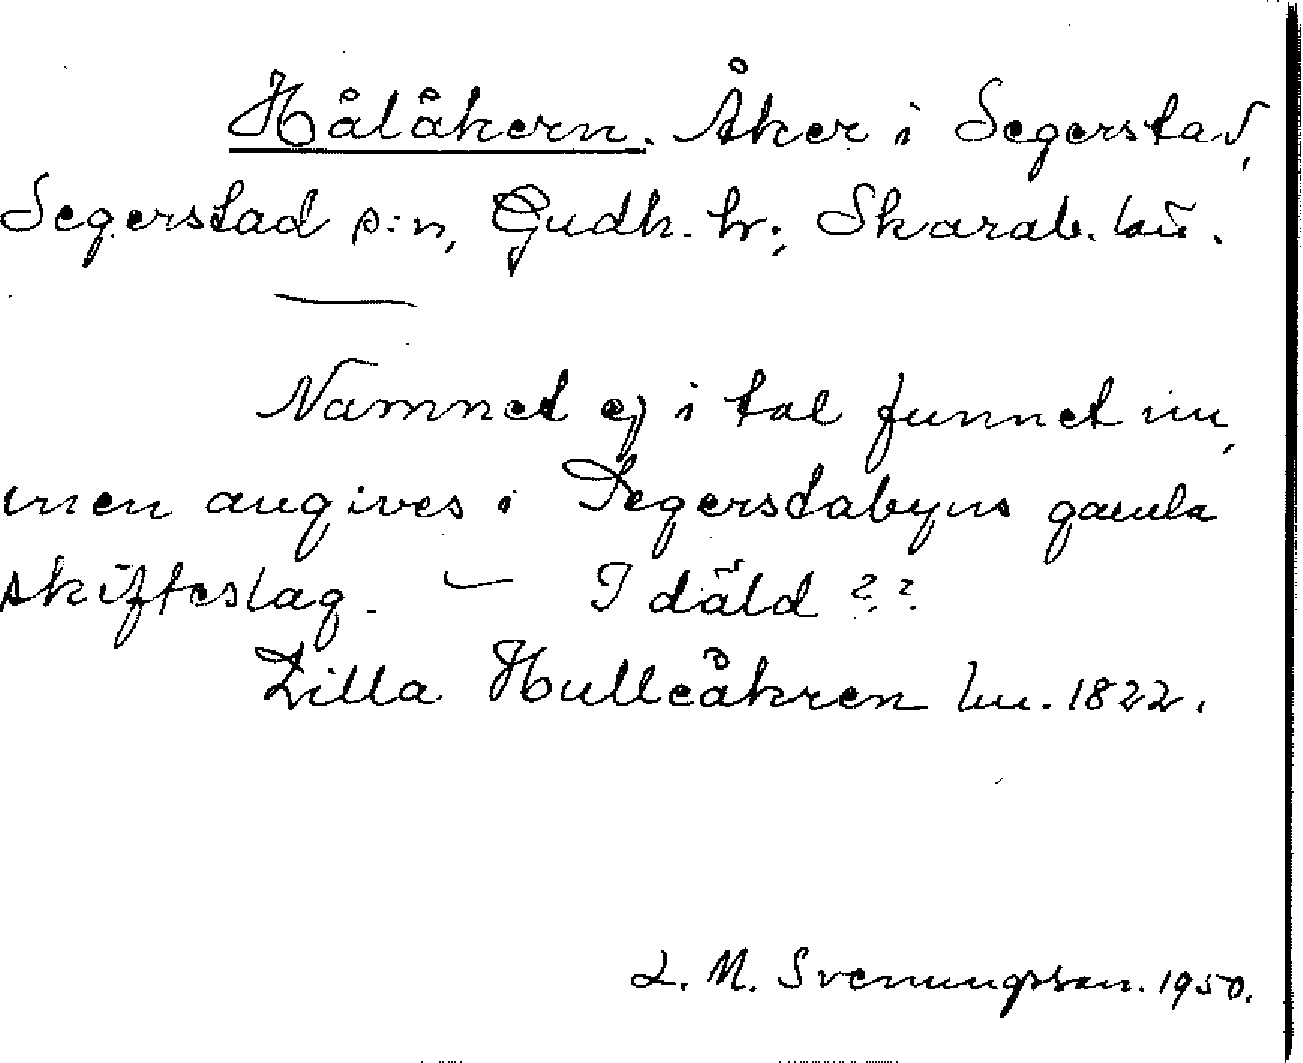 Hålåkern. Åker i Segerstad,
Segerstad s:n, Gudh. hr., Skarab. län.
Namnet ej i tal funnet nu,
men angives i Segerstabyns gamla
skifteslag. — I däld ??
Lilla Hulleåkren hm. 1822.
L. M. Svenungsson. 1950.